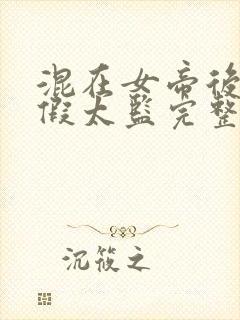 混在女帝後
假太監完整
沉筱之